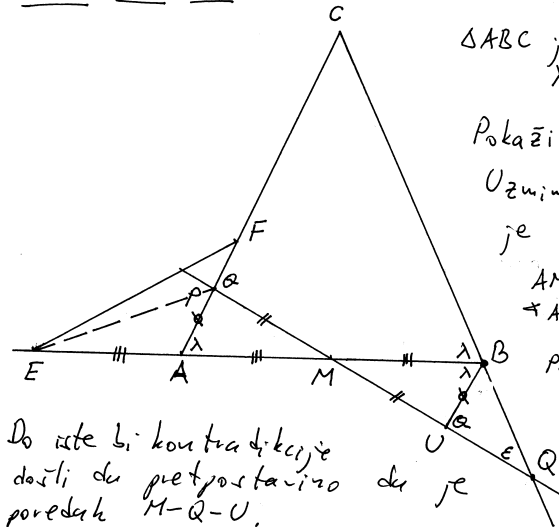 C
ΔABC j
λ
Pokaži
Uzmin
je
F
P Θ
λ
λ B
λ
E A M
U Θ
ε Q
Do iste bi kontradikcije
došli da pretpostavimo da je
poredak M-Q-U.